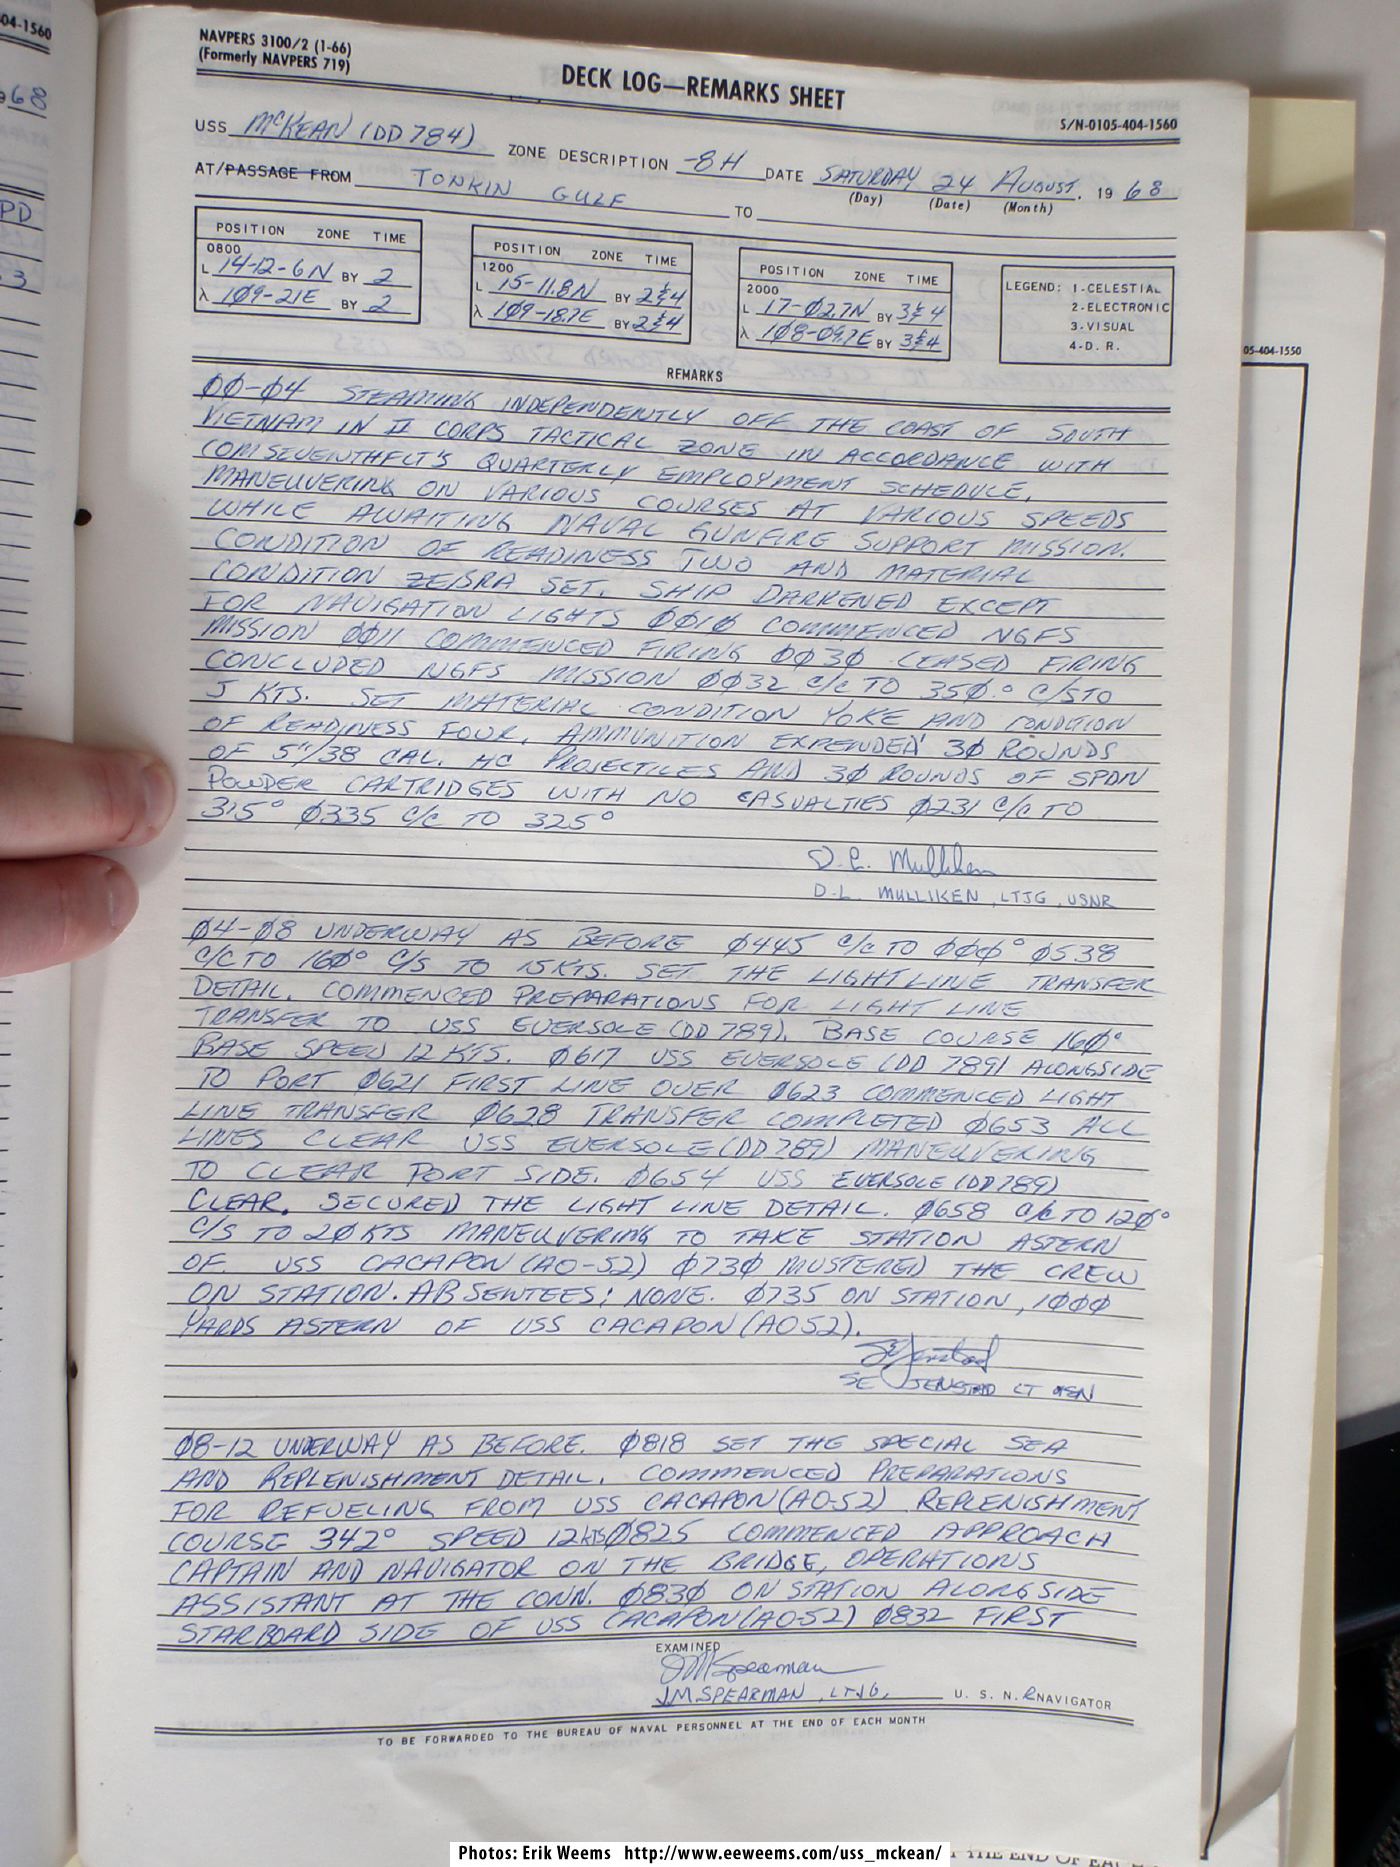 04-1560
68
PD
.3
NAVPERS 3100/2 (1-66)
(Formerly NAVPERS 719)
DECK LOG—REMARKS SHEET
S/N-0105-404-1560
USS McKEAN (DD 784) ZONE DESCRIPTION -8H DATE SATURDAY 24 AUGUST, 19 68
(Day) (Date) (Month)
AT/PASSAGE FROM TONKIN GULF TO
POSITION ZONE TIME
0800
L 14-12-6N BY 2
λ 1Ø9-21E BY 2
POSITION ZONE TIME
1200
L 15-11.8N BY 2&4
λ 1Ø9-18.7E BY 2&4
POSITION ZONE TIME
2000
L 17-Ø2.7N BY 3&4
λ 1Ø8-Ø9.7E BY 3&4
LEGEND: 1-CELESTIAL
2-ELECTRONIC
3-VISUAL
4-D. R.
REMARKS
ØØ-Ø4 STEAMING INDEPENDENTLY OFF THE COAST OF SOUTH
VIETNAM IN II CORPS TACTICAL ZONE IN ACCORDANCE WITH
COMSEVENTHFLT'S QUARTERLY EMPLOYMENT SCHEDULE.
MANEUVERING ON VARIOUS COURSES AT VARIOUS SPEEDS
WHILE AWAITING NAVAL GUNFIRE SUPPORT MISSION.
CONDITION OF READINESS TWO AND MATERIAL
CONDITION ZEBRA SET. SHIP DARKENED EXCEPT
FOR NAVIGATION LIGHTS ØØ1Ø COMMENCED NGFS
MISSION ØØ11 COMMENCED FIRING ØØ3Ø CEASED FIRING
CONCLUDED NGFS MISSION ØØ32 C/C TO 35Ø.° C/S TO
5 KTS. SET MATERIAL CONDITION YOKE AND CONDITION
OF READINESS FOUR. AMMUNITION EXPENDED 3Ø ROUNDS
OF 5"/38 CAL. HC PROJECTILES AND 3Ø ROUNDS OF SPDN
POWDER CARTRIDGES WITH NO CASUALTIES Ø231 C/C TO
315° Ø335 C/C TO 325°
D. L. Mulliken
D.L. MULLIKEN, LTJG, USNR
Ø4-Ø8 UNDERWAY AS BEFORE Ø445 C/C TO ØØØ° Ø538
C/C TO 16Ø° C/S TO 15 KTS. SET THE LIGHTLINE TRANSFER
DETAIL. COMMENCED PREPARATIONS FOR LIGHT LINE
TRANSFER TO USS EVERSOLE (DD 789). BASE COURSE 16Ø°
BASE SPEED 12 KTS. Ø617 USS EVERSOLE (DD 789) ALONGSIDE
TO PORT Ø621 FIRST LINE OVER Ø623 COMMENCED LIGHT
LINE TRANSFER Ø628 TRANSFER COMPLETED Ø653 ALL
LINES CLEAR USS EVERSOLE (DD 789) MANEUVERING
TO CLEAR PORT SIDE. Ø654 USS EVERSOLE (DD789)
CLEAR. SECURED THE LIGHT LINE DETAIL. Ø658 C/C TO 12Ø°
C/S TO 2Ø KTS MANEUVERING TO TAKE STATION ASTERN
OF USS CACAPON (AO-52) Ø73Ø MUSTERED THE CREW
ON STATION. ABSENTEES; NONE. Ø735 ON STATION, 1ØØØ
YARDS ASTERN OF USS CACAPON (AO52).
SE JENSTAD LT USN
Ø8-12 UNDERWAY AS BEFORE. Ø818 SET THE SPECIAL SEA
AND REPLENISHMENT DETAIL. COMMENCED PREPARATIONS
FOR REFUELING FROM USS CACAPON (AO-52) REPLENISHMENT
COURSE 342° SPEED 12 KTS Ø825 COMMENCED APPROACH
CAPTAIN AND NAVIGATOR ON THE BRIDGE, OPERATIONS
ASSISTANT AT THE CONN. Ø83Ø ON STATION ALONGSIDE
STARBOARD SIDE OF USS CACAPON (AO-52) Ø832 FIRST
EXAMINED
JM Spearman
J.M. SPEARMAN, LTJG, U. S. N. R NAVIGATOR
TO BE FORWARDED TO THE BUREAU OF NAVAL PERSONNEL AT THE END OF EACH MONTH
05-404-1550
Photos: Erik Weems http://www.eeweems.com/uss_mckean/